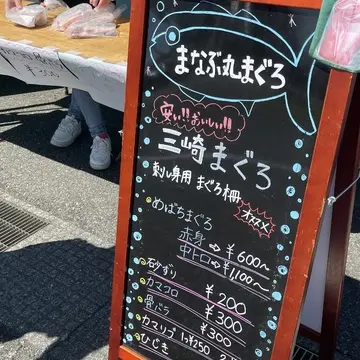 まなぶ丸まぐろ
安い!!おいしい!!
三崎まぐろ
刺し身用 まぐろ柵
めばちまぐろ オススメ
赤身→¥600〜
中トロ→¥1,100〜
砂ずり ¥200
カマコロ ¥300
骨バラ ¥300
カマリブ 1コ¥250
ひじき